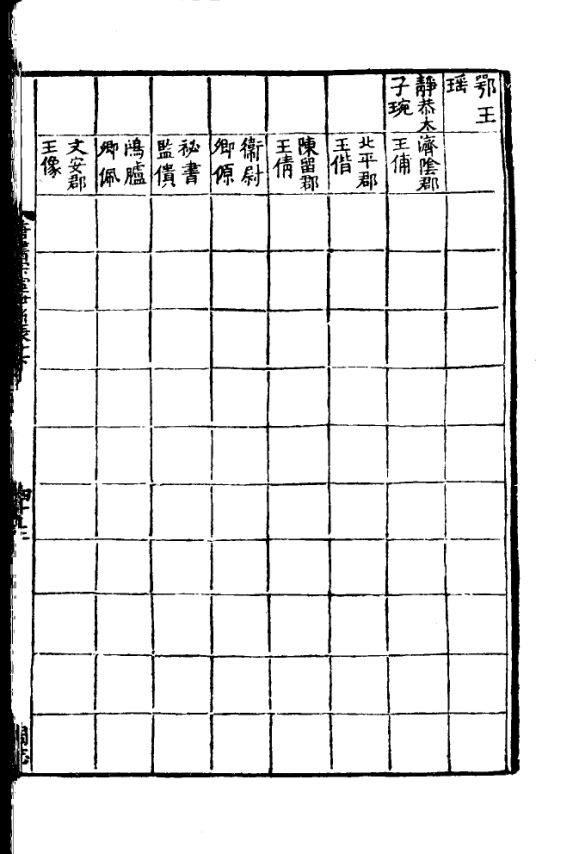 鄂王
瑶
靜恭太
子琬
濟陰郡
王俌
北平郡
王偕
陳留郡
王倩
衞尉
卿傆
祕書
監僓
鴻臚
卿佩
文安郡
王像